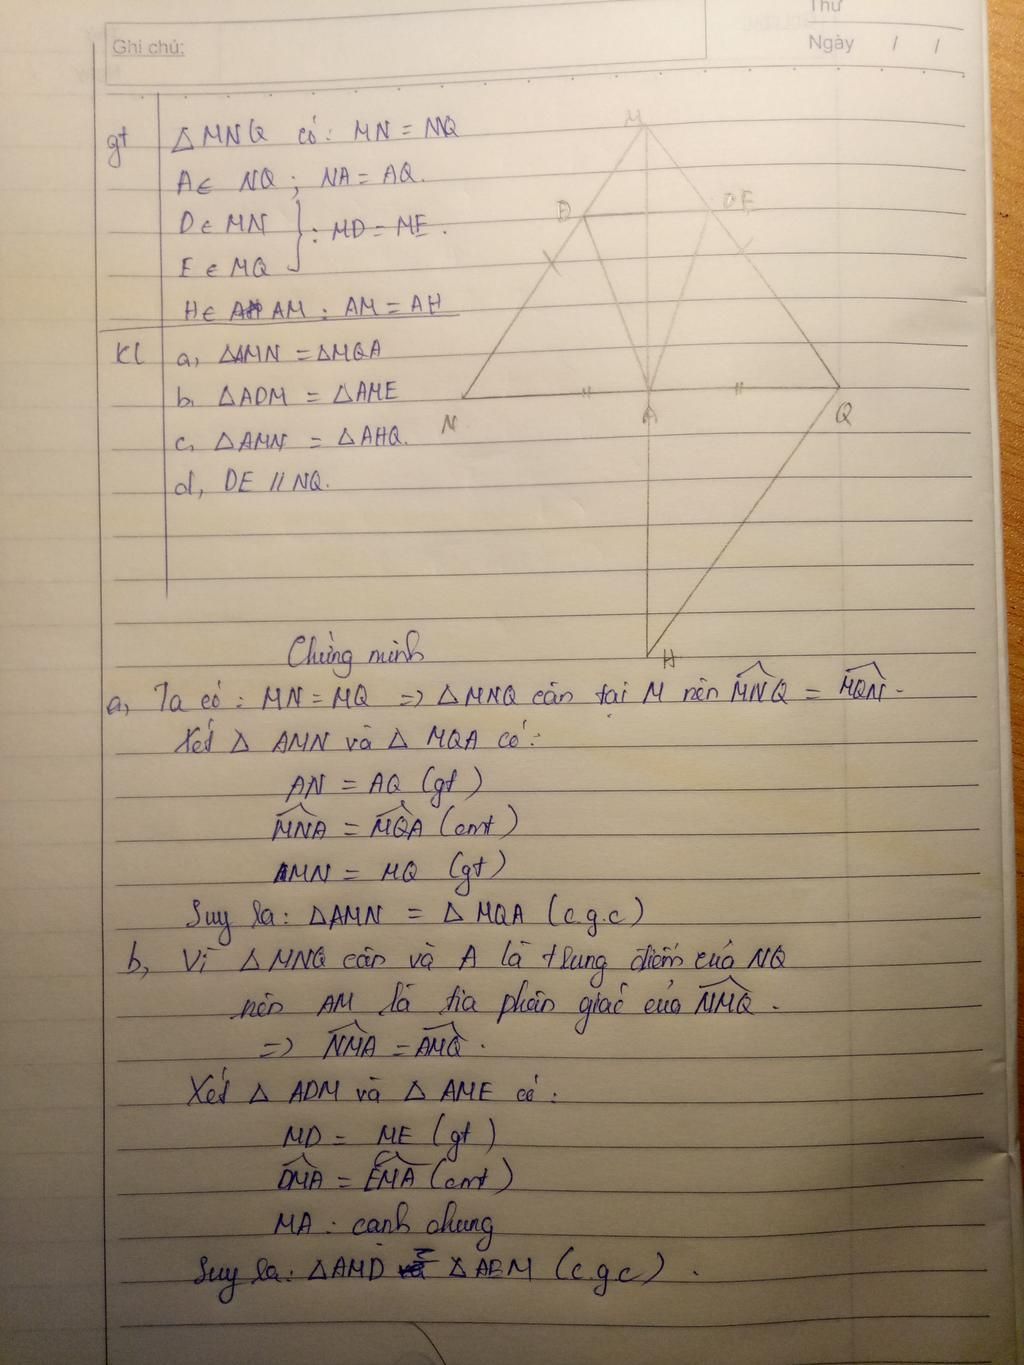 Thứ
Ghi chú:
Ngày / /
gt
△MNQ có: MN = MQ
A ∈ NQ ; NA = AQ.
D ∈ MN
E ∈ MQ
} : MD = ME.
H ∈ AM : AM = AH
Kl
a, △AMN = △MQA
b, △ADM = △AME
c, △AMN = △AHQ.
d, DE // NQ.
M
D
E
N
A
Q
H
Chứng minh
a, Ta có: MN = MQ => △MNQ cân tại M nên MNQ = MQN.
Xét △ AMN và △ MQA có:
AN = AQ (gt)
MNA = MQA (cmt)
MN = MQ (gt)
Suy ra: △AMN = △MQA (c.g.c)
b, Vì △MNQ cân và A là trung điểm của NQ
nên AM là tia phân giác của NMQ.
=> NMA = AMQ.
Xét △ ADM và △ AME có:
MD = ME (gt)
DMA = EMA (cmt)
MA: cạnh chung
Suy ra: △AMD = △AEM (c.g.c).